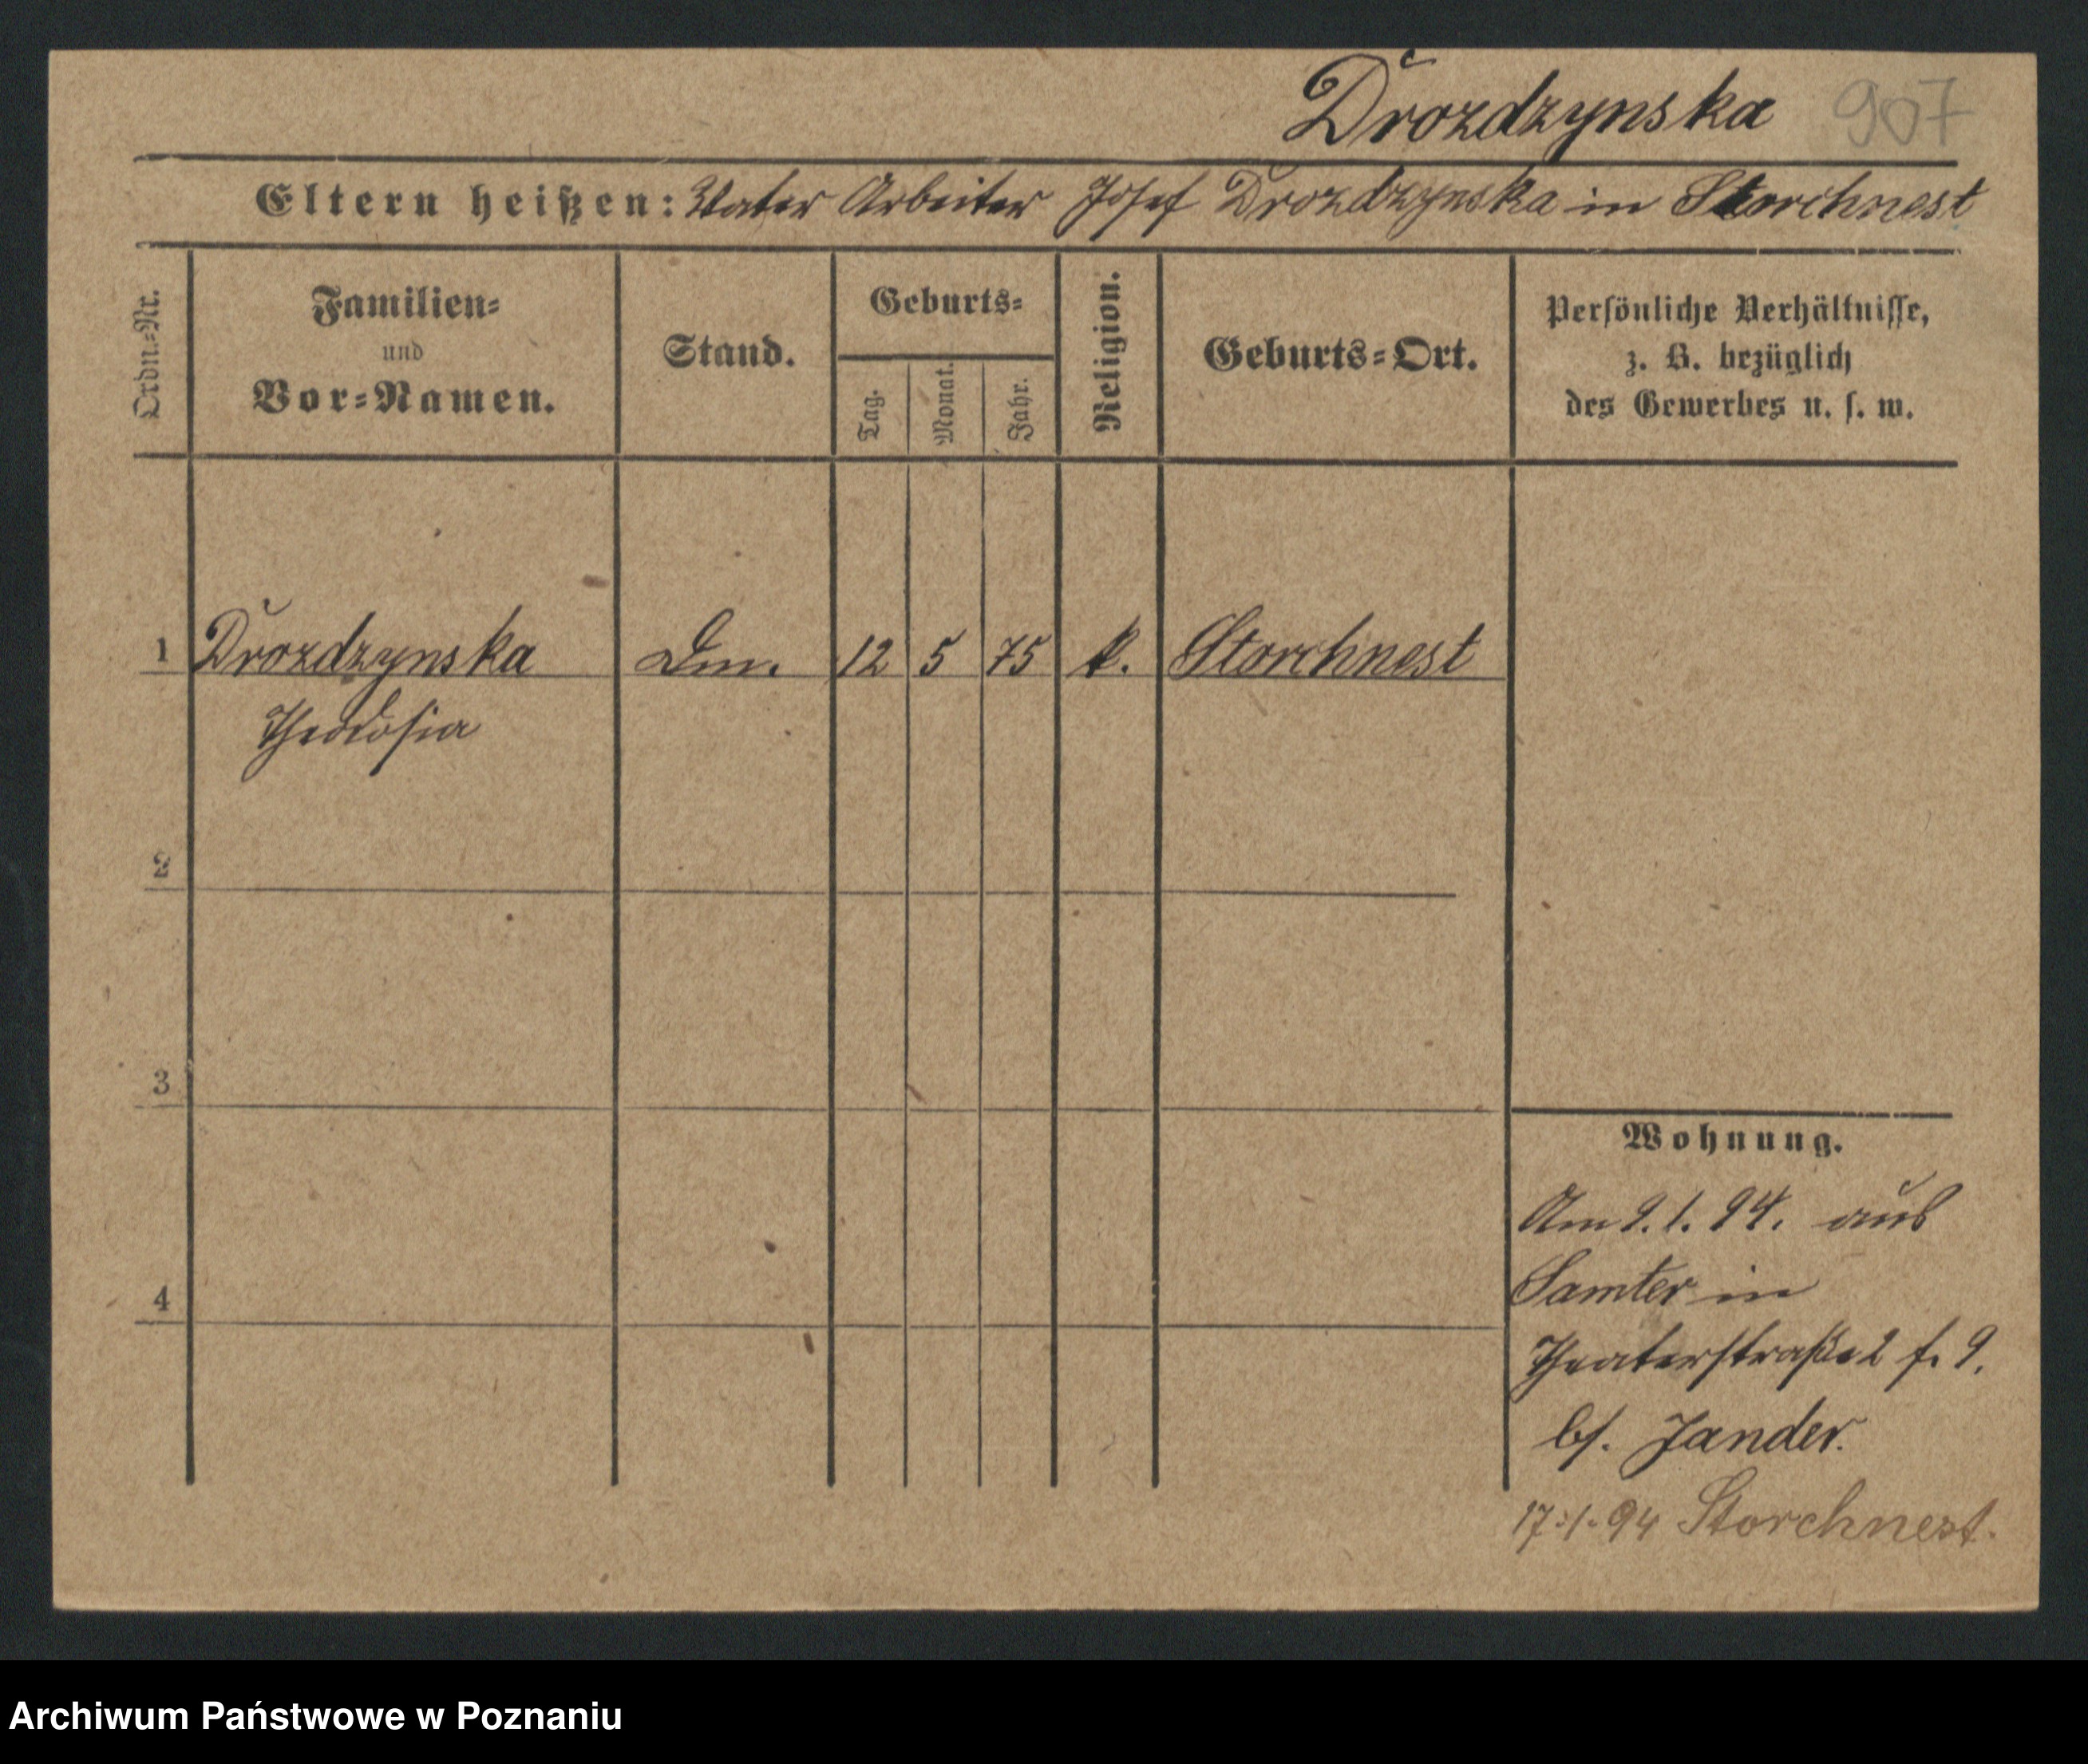 Drozdzynska 907
Eltern heißen: Vater Arbeiter Josef Drozdzynska in Storchnest
Ordn.-Nr.
Familien-
und
Vor-Namen.
Stand.
Geburts-
Tag.
Monat.
Jahr.
Religion.
Geburts-Ort.
Persönliche Verhältnisse,
z. B. bezüglich
des Gewerbes u. s. w.
1 Drozdzynska Dm. 12 5 75 k. Storchnest
Theodosia
2
3
4
Wohnung.
Am 9. 1. 94. aus
Samter in
Theaterstraße 2
bei Jander.
17.1.94 Storchnest.
Archiwum Państwowe w Poznaniu